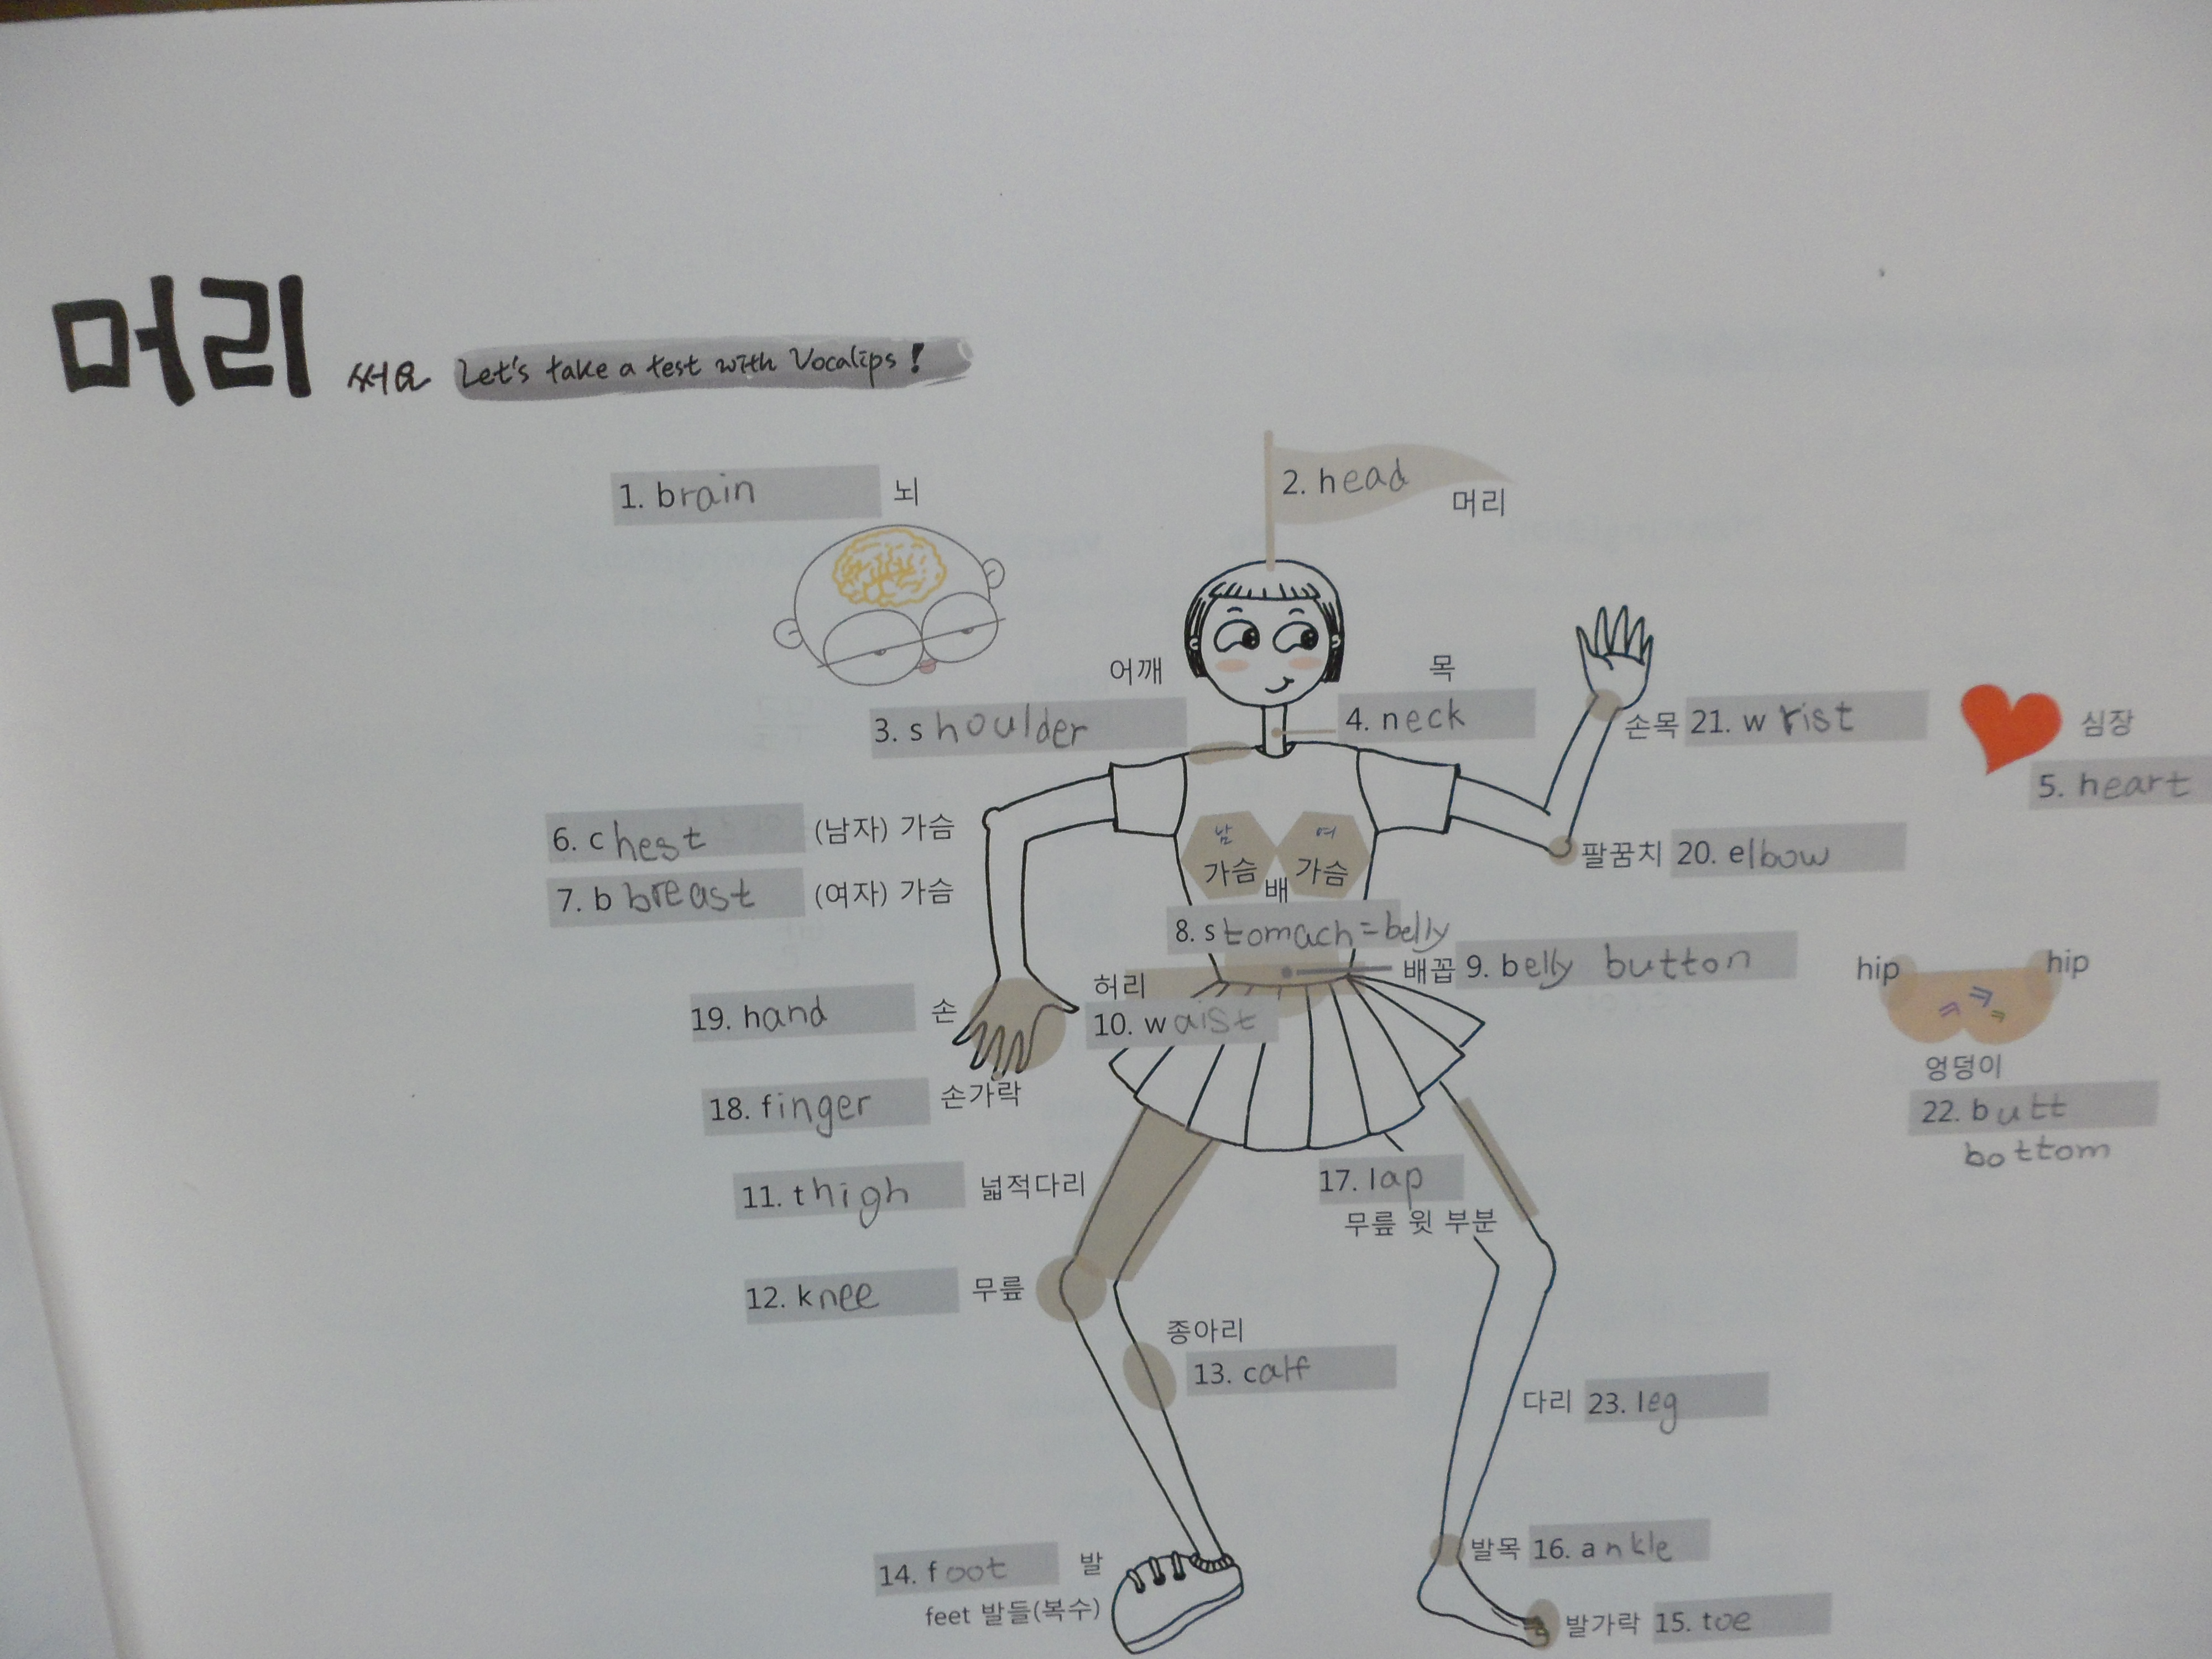 머리 써요 Let's take a test with Vocalips!
1. brain 뇌
2. head
머리
어깨
3. shoulder
목
4. neck
손목 21. wrist
심장
5. heart
6. chest (남자) 가슴
7. b breast (여자) 가슴
남
가슴
여
가슴
팔꿈치 20. elbow
배
8. stomach = belly
배꼽 9. belly button
허리
10. waist
hip
hip
엉덩이
22. butt
bottom
19. hand 손
18. finger 손가락
11. thigh 넓적다리
17. lap
무릎 윗 부분
12. knee 무릎
종아리
13. calf
다리 23. leg
14. foot 발
feet 발들(복수)
발목 16. ankle
발가락 15. toe